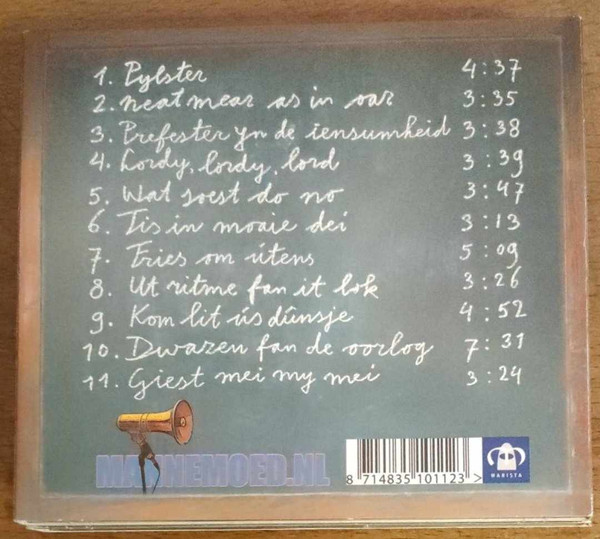 1. Pylster 4:37
2. neat mear as in oar 3:35
3. Prefester yn de iensumheid 3:38
4. Lordy, lordy, lord 3:39
5. Wat soest do no 3:47
6. Tis in moaie dei 3:13
7. Fries om útens 5:09
8. Ut ritme fan it lok 3:26
9. Kom lit ús dûnsje 4:52
10. Dwazen fan de oorlog 7:31
11. Giest mei my mei 3:24
MANNEMOED.NL
8 714835 101123 >
MARISTA